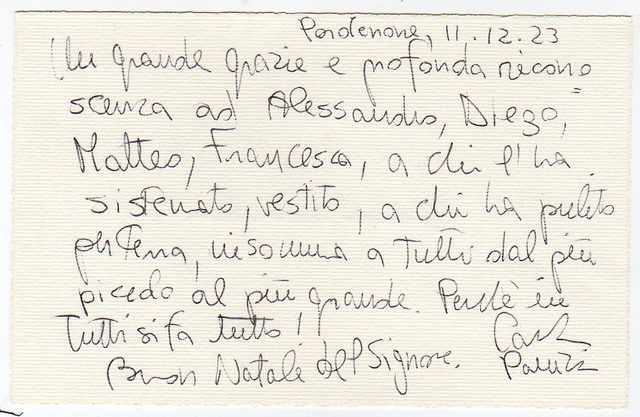 Pordenone, 11.12.23
Un grande grazie e profonda ricono=
scenza ad Alessandro, Diego,
Matteo, Francesca, a chi l'ha
sistemato, vestito, a chi ha pulito
per terra, insomma a tutti dal più
piccolo al più grande. Perchè in
tutti si fa tutto!
Buon Natale del Signore.